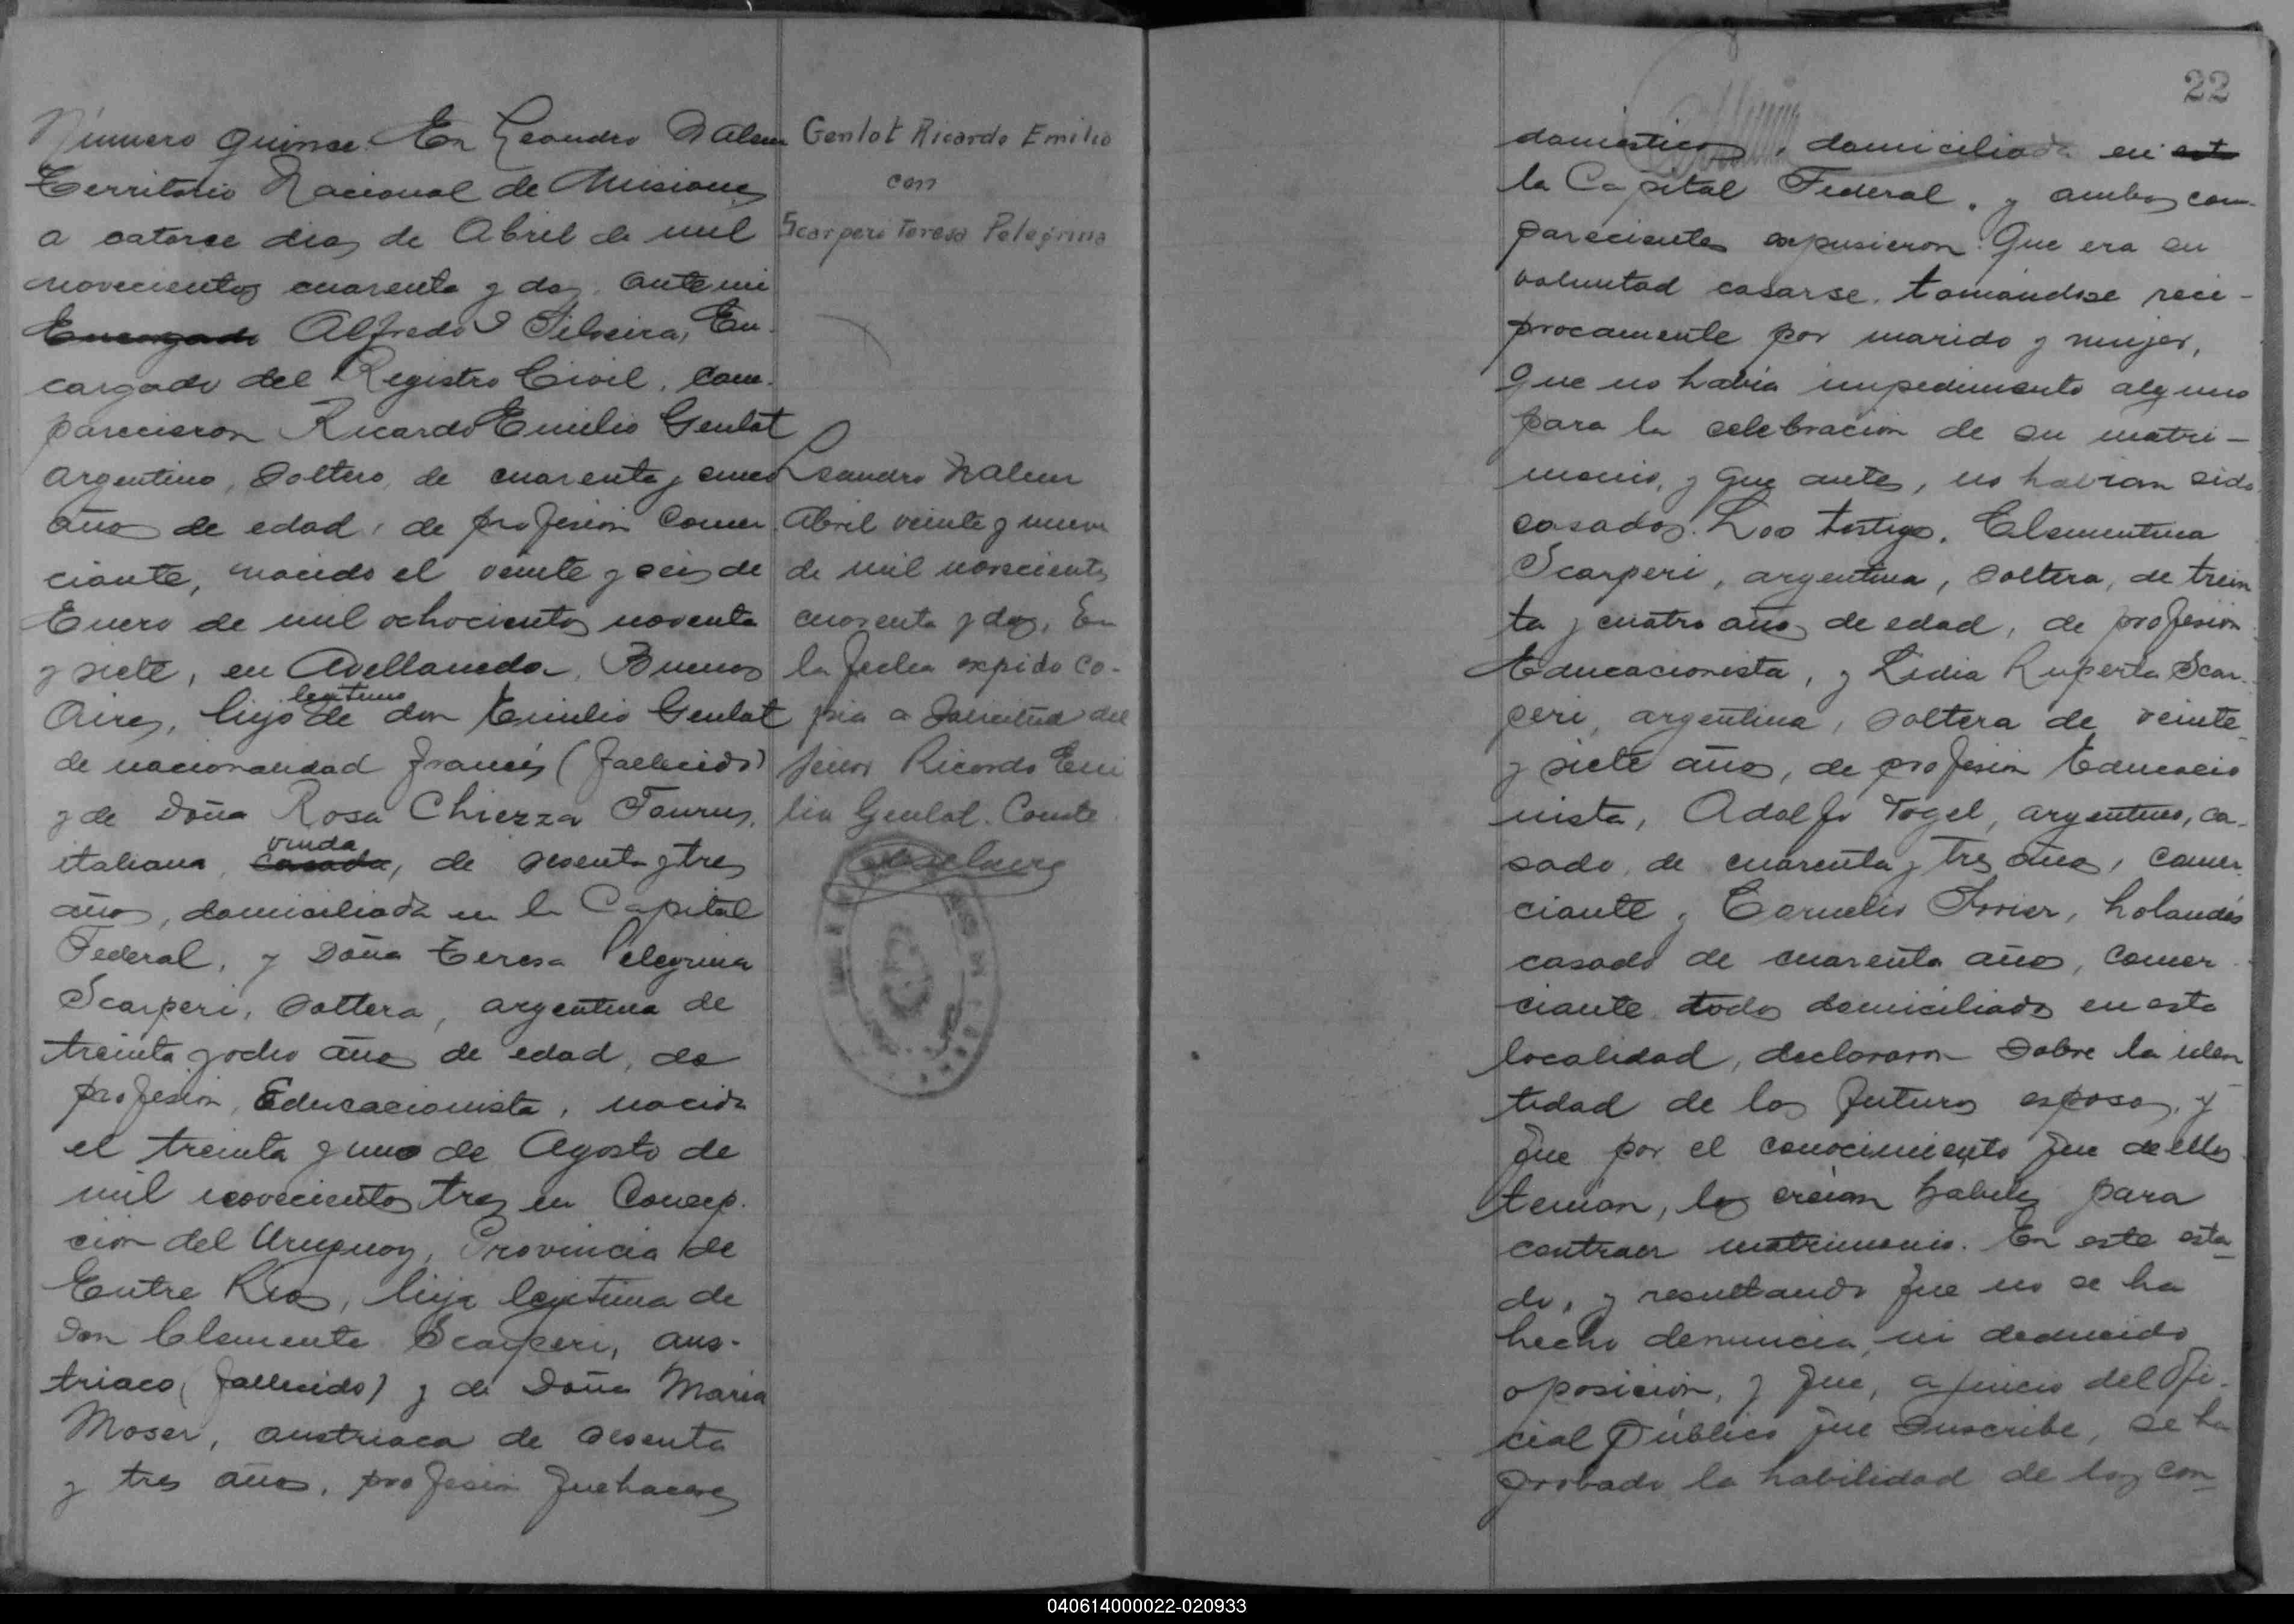 Número quinse. En Leandro N Alem
Territorio Nacional de Misiones
a catorce dias de Abril de mil
novecientos cuarenta y dos, ante mi
Encargado Alfredo Silveira, En-
cargado del Registro Civil, Com-
parecieron Ricardo Emilio Genlot
argentino, Soltero, de cuarenta y cinco
años de edad, de profesion Comer
ciante, nacido el veinte y seis de
Enero de mil ochocientos noventa
y siete, en Avellaneda, Buenos
legitimo
Aires, hijo de don Emilio Genlot
de nacionalidad francés (fallecido)
y de Doña Rosa Chiezza Taurus,
viuda
italiana, casada, de sesenta y tres
años, domiciliada en la Capital
Federal, y Doña Teresa Pelegrina
Scarperi, Soltera, argentina de
treinta y ocho años de edad, de
profesion, Educacionista, nacida
el treinta y uno de Agosto de
mil novecientos tres en Concep-
cion del Uruguay, Provincia de
Entre Rios, hija legitima de
Don Clemente Scarperi, aus-
triaco (fallecido) y de Doña Maria
Moser, austriaca de sesenta
y tres años, profesion quehaceres
Genlot Ricardo Emilio
con
Scarperi Teresa Pelegrina
Leandro N Alem
Abril veinte y nueve
de mil novecientos
cuarenta y dos, En
la fecha expido co-
pia a Solicitud del
señor Ricardo Emi
lio Genlot. Conste
22
domesticos, domiciliada en esta
la Capital Federal, y ambos com-
parecientes expusieron: Que era su
voluntad casarse, tomandose reci-
procamente por marido y mujer,
Que no habia impedimento alguno
para la celebracion de su matri-
monio, y que antes, no habian sido
casados. Los testigos, Clementina
Scarperi, argentina, Soltera, de trein
ta y cuatro años de edad, de profesion
Educacionista, y Lidia Ruperta Scar-
peri, argentina, Soltera de veinte
y siete años, de profesion Educacio
nista, Adolfo Vogel, argentino, ca-
sado, de cuarenta y tres años, comer
ciante y Cornelio, holandés
casado de cuarenta años, comer
ciante todos domiciliados en esta
localidad, declararon Sobre la iden
tidad de los futuros esposos, y
que por el conocimiento que de ellos
tenian, los creian habiles para
contraer matrimonio. En este esta-
do, y resultando que no se ha
hecho denuncia, ni deducido
oposicion, y que, a juicio del Ofi-
cial Público que Suscribe, se ha
probado la habilidad de los con-
040614000022-020933